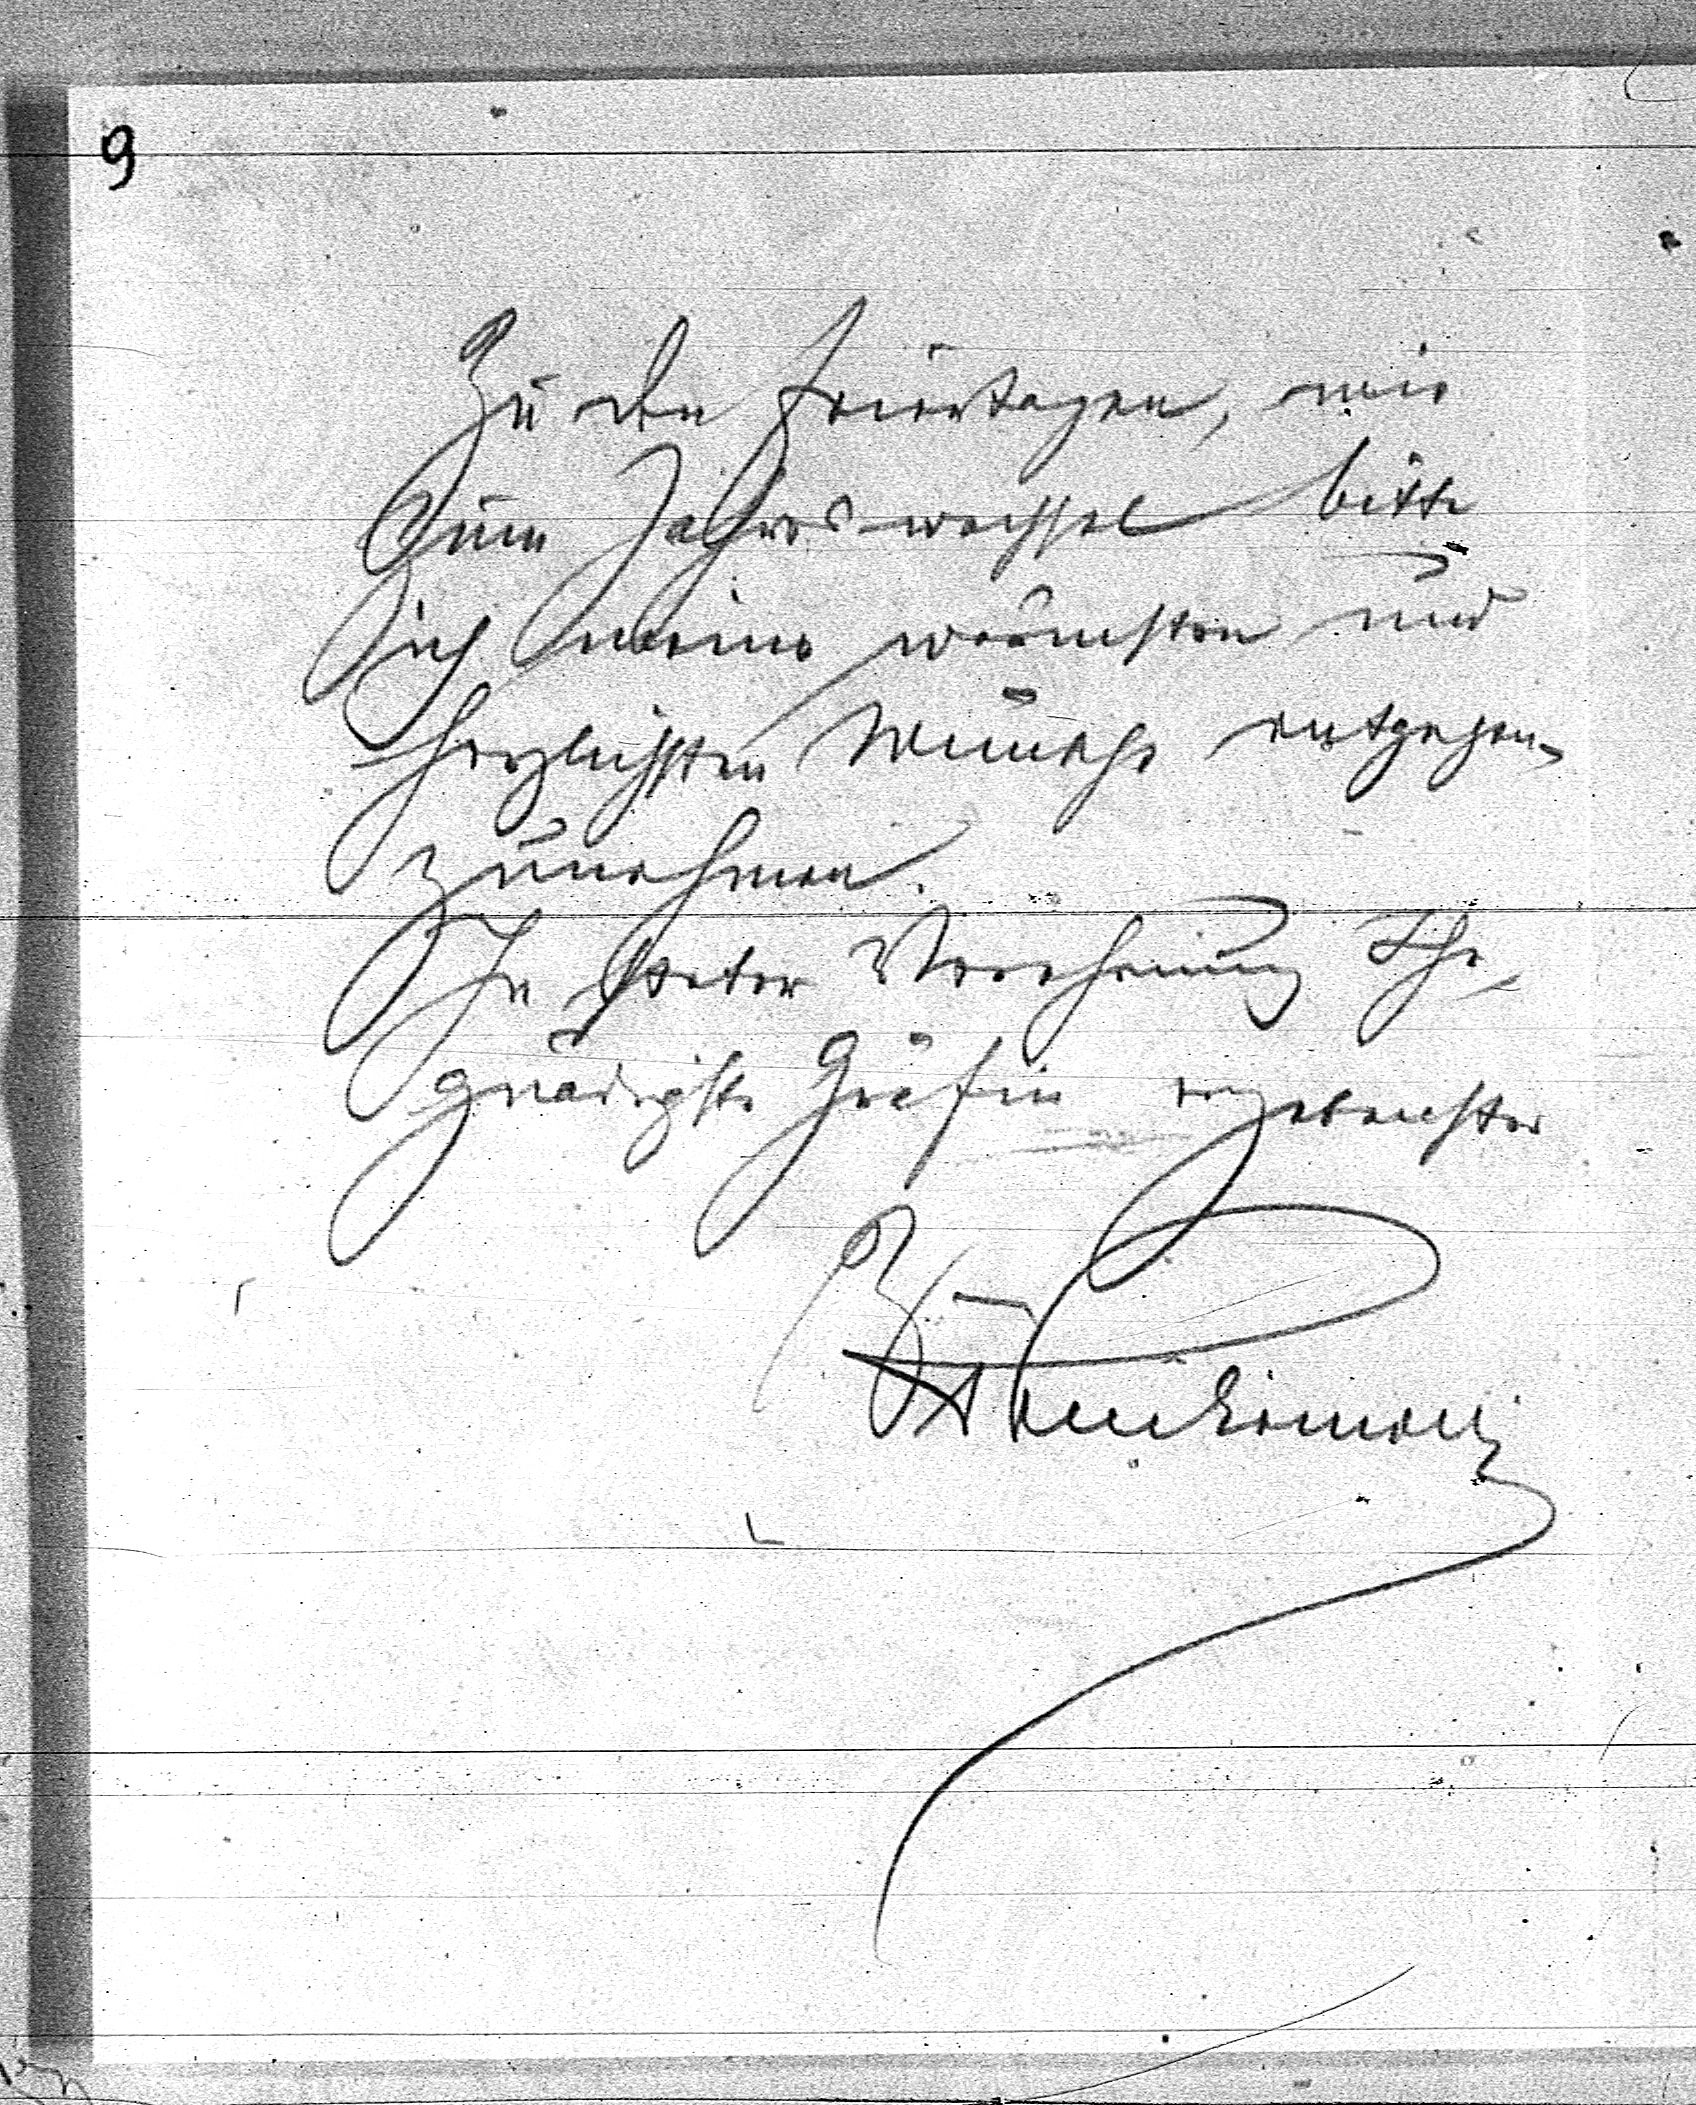 9
Zu den Feiertagen, wie
zum Jahreswechsel bitte
ich meine wärmsten und
herzlichsten Wünsche entgegen-
zunehmen.
In steter Verehrung Ihr,
gnädigste Gräfin ergebenster